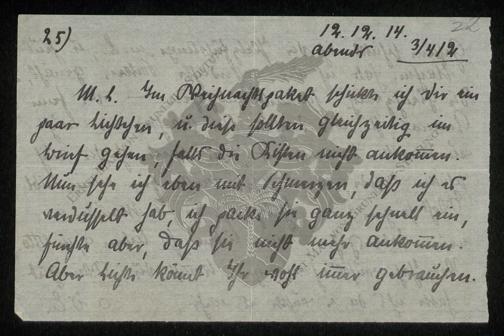 25) 12.12.14. 22
abends 3/4 12
M. L. Im Weihnachtspaket schickte ich Dir ein
paar Lichtchen, u. diese sollten gleichzeitig im
Brief gehen, falls die Kisten nicht ankommen.
Nun sehe ich eben mit Schmerzen, daß ich es
verdusselt hab, ich packe sie ganz schnell ein,
fürchte aber, daß sie nicht mehr ankommen.
Aber Lichte könnt Ihr wohl immer gebrauchen.